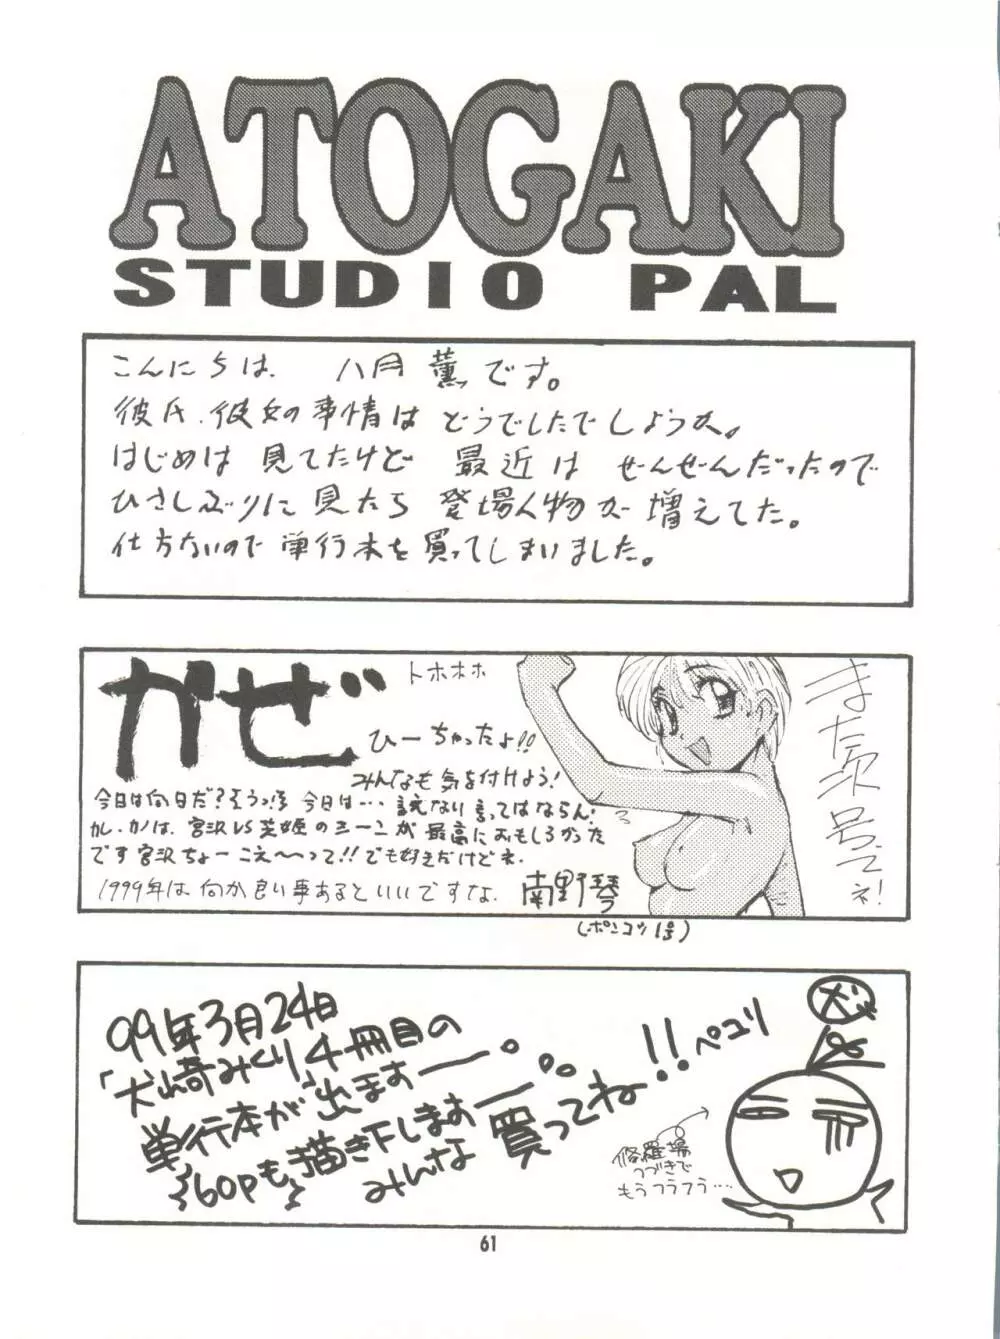 ATOGAKI
STUDIO PAL
こんにちは、八月薫です。
彼氏、彼女の事情はどうでしたでしょうか。
はじめは見てたけど最近はぜんぜんだったので
ひさしぶりに見たら登場人物が増えてた。
仕方ないので単行本を買ってしまいました。
かぜ
トホホホ
ひーちゃったよ!!
みんなも気を付けよう!
今日は何日だ?そうっ!?今日は…言えない言ってはならん!
カレ・カノは、宮沢VS芝姫のシーンが最高におもしろかった
です宮沢ちょーこえ〜〜って!!でも好きだけどネ.
1999年は何か良い事あるといいですな.
南野琴
(ポンコツ1号)
また次号でネ!
99年3月24日
「犬崎みくり」4冊目の
単行本が出ますー。
60pも描き下しますー。。
みんな買ってね!!ペコリ
犬
修羅場
つづきで
もうフラフラ…
61